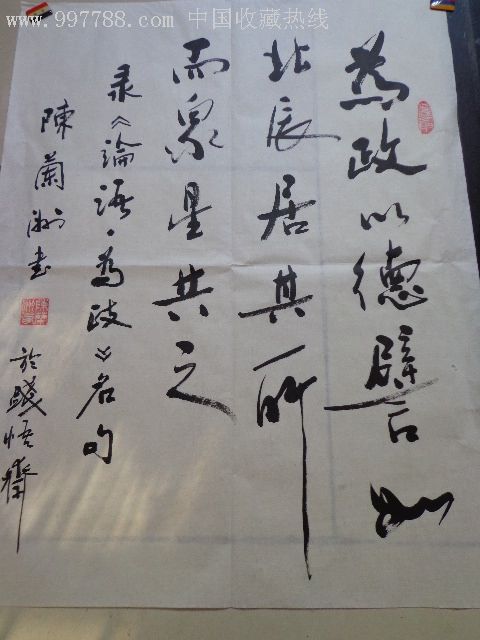 www.997788.com 中国收藏热线
為政以德譬如
北辰居其所
而衆星共之
录《論語·為政》名句
陳蘭洲書
於践悟齋